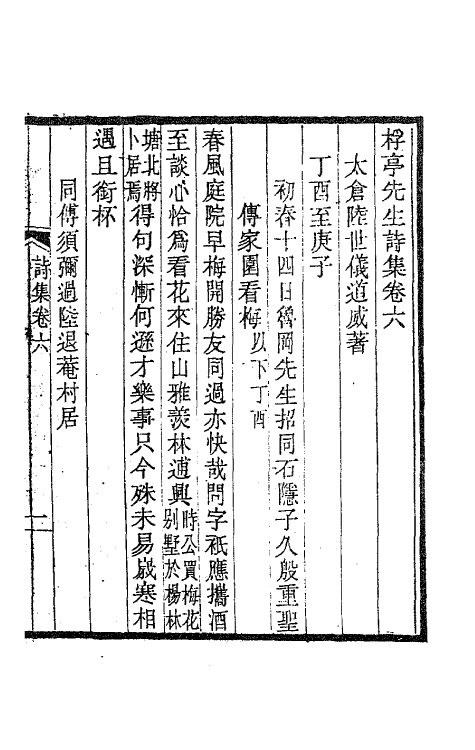 桴亭先生詩集卷六
太倉陸世儀道威著
丁酉至庚子
初春十四日魯岡先生招同石隱子久殷重聖
傳家園看梅以下丁酉
春風庭院早梅開勝友同過亦快哉問字祇應攜酒
至談心恰爲看花來住山雅羨林逋興時公買梅花別墅於楊林
塘北將卜居焉得句深慚何遜才樂事只今殊未易歲寒相
遇且銜杯
同傅須彌過陸退菴村居
詩集卷六
一